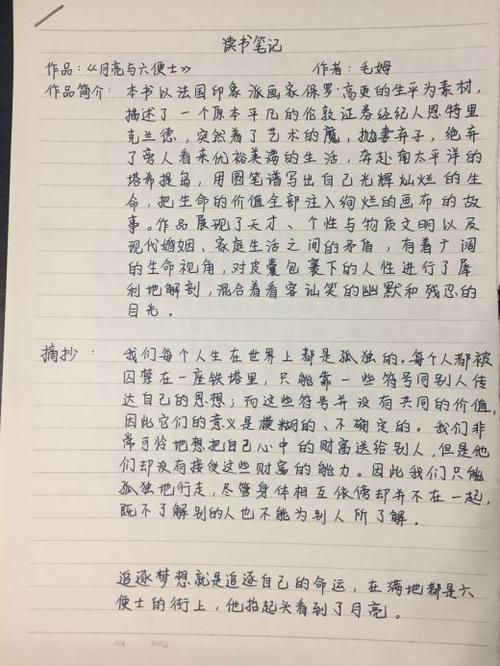 读书笔记
作品:《月亮与六便士》 作者:毛姆
作品简介:本书以法国印象派画家保罗·高更的生平为素材,
描述了一个原本平凡的伦敦证券经纪人思特里
克兰德,突然着了艺术的魔,抛妻弃子,绝弃
了旁人看来优裕美满的生活,奔赴南太平洋的
塔希提岛,用圆笔谱写出自己光辉灿烂的生
命,把生命的价值全部注入绚烂的画布的故
事。作品展现了天才、个性与物质文明以及
现代婚姻、家庭生活之间的矛盾,有着广阔
的生命视角,对皮囊包裹下的人性进行了犀
利地解剖,混合着看客讪笑的幽默和残忍的
目光。
摘抄:我们每个人生在世界上都是孤独的。每个人都被
囚禁在一座铁塔里,只能靠一些符号同别人传
达自己的思想;而这些符号并没有共同的价值,
因此它们的意义是模糊的、不确定的。我们非
常可怜地想把自己心中的财富送给别人,但是他
们却没有接受这些财富的能力。因此我们只能
孤独地行走,尽管身体相互依傍却并不在一起,
既不了解别的人也不能为别人所了解.
追逐梦想就是追逐自己的命运,在满地都是六
便士的街上,他抬起头看到了月亮。